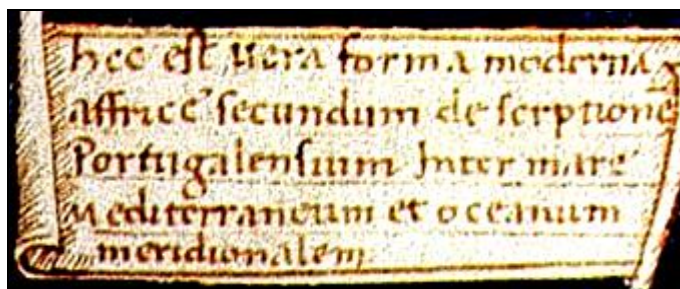 hec est vera forma moderna
affrice secundum de scrptione
Portugalensium Inter mare
Mediterraneum et oceanum
meridionalem